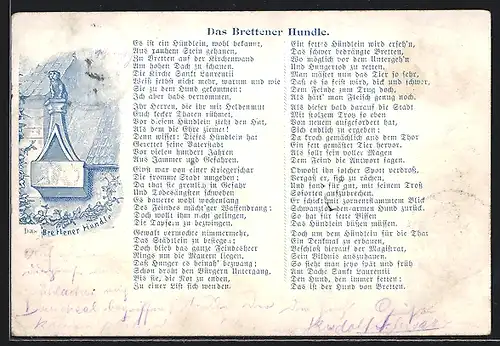 Das Brettener Hundle.
Es ist ein Hündlein, wohl bekannt,
Aus rauhem Stein gehauen,
Zu Bretten auf der Kirchenwand
Am hohen Dach zu schauen.
Die Kirche Sankt Laurentii
Weiß selbst nicht mehr, warum und wie
Sie zu dem Hund gekommen:
Ich aber habs vernommen.
Ihr Herren, die ihr mit Heldenmut
Euch kecker Thaten rühmet,
Vor diesem Hündlein zieht den Hut,
Als dem die Ehre ziemet!
Denn wisset: Dieses Hündlein hat
Gerettet seine Vaterstadt
Vor vielen hundert Jahren
Aus Jammer und Gefahren.
Einst war von einer Kriegerschar
Die fromme Stadt umgeben:
Da that sie greulich in Gefahr
Und Todesängsten schweben
Es dauerte wohl wochenlang
Des Feindes mächt'ger Waffendrang:
Doch wollt ihm nicht gelingen,
Die Tapfern zu bezwingen.
Gewalt vermochte nimmermehr,
Das Städtlein zu besiege:
Doch blieb das ganze Feindesheer
Rings um die Mauern liegen.
Daß Hunger es heimah' bezwang:
Schon droht den Bürgern Untergang.
Bis sie, die Not zu enden,
Zu einer List sich wenden.
Ein fettes Hündlein wird erseh'n,
Das schwer bedrängte Bretten,
Wo möglich vor dem Untergeh'n
Und Hungertod zu retten.
Man mästet nun das Tier so sehr,
Daß es so feist wird, dick und schwer,
Dem Feinde zum Trug doch,
Als hätt' man Fleisch genug noch.
Als dieser bald darauf die Stadt
Mit stolzem Troß so eben
Von neuem aufgefordert hat,
Sich endlich zu ergeben:
Da kroch gemächlich aus dem Thor
Ein fett gemästet Tier hervor.
Als sollt sein voller Magen
Dem Feinde die Antwort sagen.
Obwohl ihn solcher Spott verdroß,
Vergaß er, sich zu rächen,
Und fand für gut, mit seinem Troß
Sofort aufzubrechen.
Er schickt mit zornentflammtem Blick
Schwanzlos den armen Hund zurück.
So hat für fette Bissen
Das Hündlein büßen müssen.
Doch um dem Hündlein für die That
Ein Denkmal zu erbauen,
Beschloß hierauf der Magistrat,
Sein Bildnis auszuhauen.
So sieht man jetzo spät und früh
Am Dache Sankt Laurentii
Den Hund, den immer seinen:
Das ist der Hund von Bretten.
Das Brettener Hundle